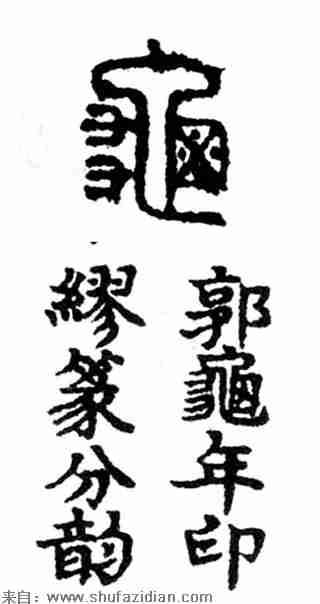 龜
郭龜年印
繆篆分韵
来自：www.shufazidian.com